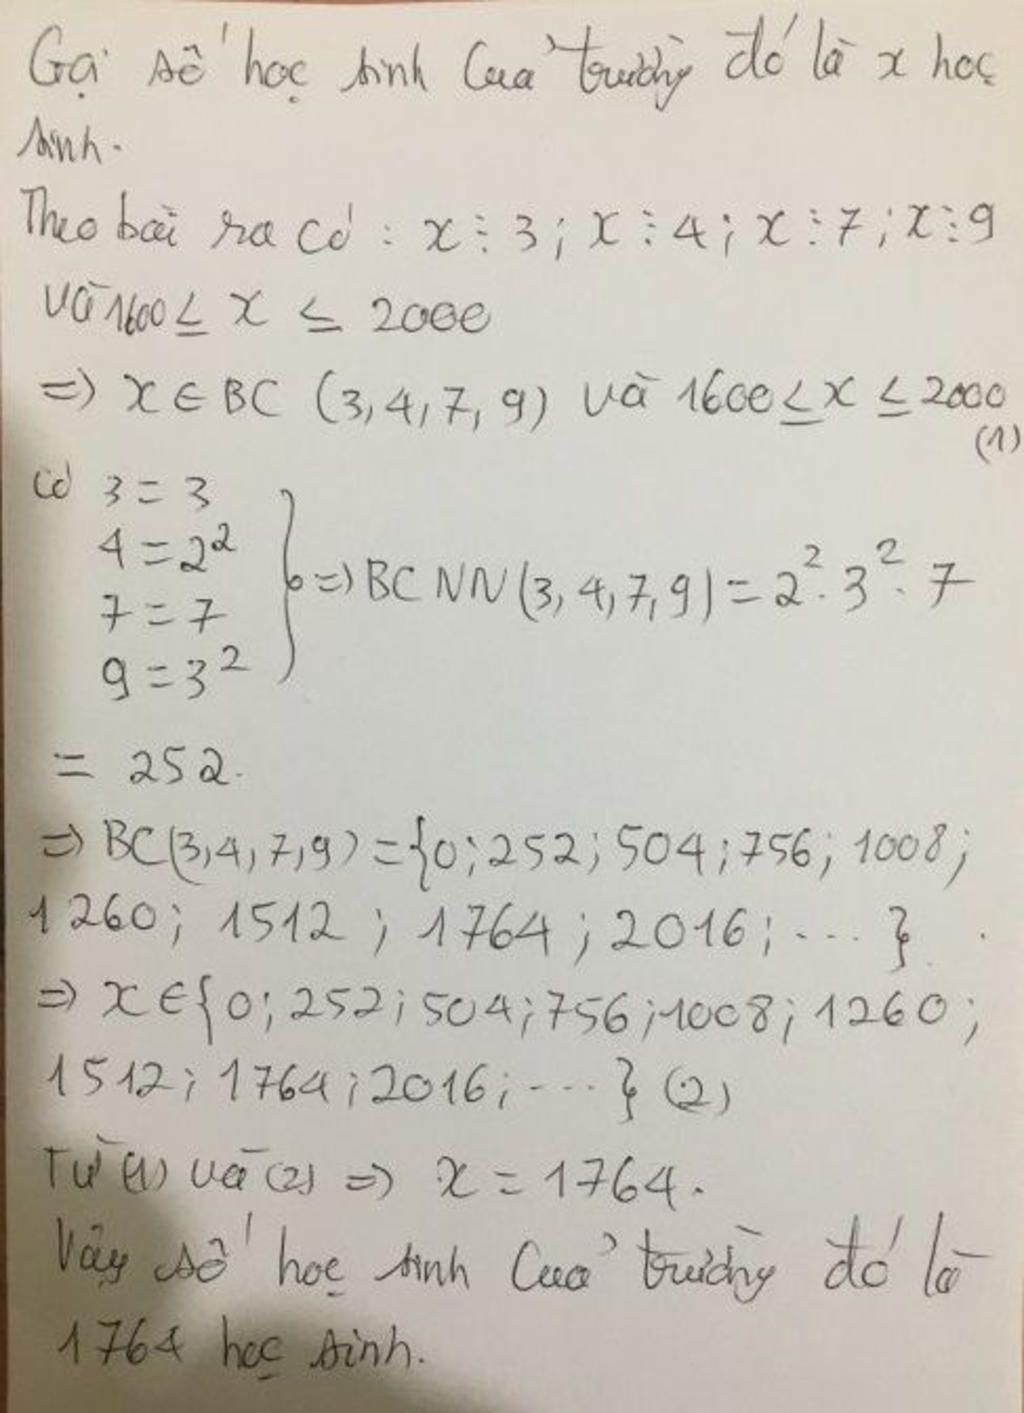 Gọi số học sinh của trường đó là x học
sinh.
Theo bài ra có : x ⋮ 3 ; x ⋮ 4 ; x ⋮ 7 ; x ⋮ 9
và 1600 ≤ x ≤ 2000
=> x ∈ BC (3, 4, 7, 9) và 1600 ≤ x ≤ 2000
(1)
Có 3 = 3
4 = 2²
7 = 7
9 = 3²
} => BCNN (3, 4, 7, 9) = 2² . 3² . 7
= 252.
=> BC(3,4,7,9) = {0; 252; 504; 756; 1008;
1260; 1512; 1764; 2016; ... }
=> x ∈ {0; 252; 504; 756; 1008; 1260;
1512; 1764; 2016; ... } (2)
Từ (1) và (2) => x = 1764.
Vậy số học sinh của trường đó là
1764 học sinh.